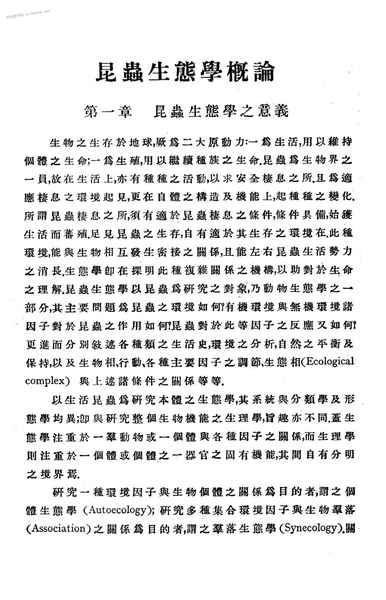 昆蟲生態學概論
第一章 昆蟲生態學之意義
生物之生存於地球,厥爲二大原動力:一爲生活,用以維持
個體之生命;一爲生殖,用以繼續種族之生命.昆蟲爲生物界之
一員,故在生活上,亦有種種之活動,以求安全棲息之所.且爲適
應棲息之環境起見,更在自體之構造及機能上,起種種之變化.
所謂昆蟲棲息之所,須有適於昆蟲棲息之條件,條件具備,始獲
生活而蕃殖,足見昆蟲之生存,自有適於其生存之環境在.此種
環境,能與生物相互發生密接之關係,且能左右昆蟲生活勢力
之消長.生態學卽在探明此種複雜關係之機構,以助對於生命
之理解.昆蟲生態學以昆蟲爲硏究之對象,乃動物生態學之一
部分,其主要問題爲昆蟲之環境如何?有機環境與無機環境諸
因子對於昆蟲之作用如何?昆蟲對於此等因子之反應又如何?
更進而分別敍述各種類之生活史,環境之分析,自然之平衡及
保持,以及生物相,行動,各種主要因子之調節,生態相(Ecological
complex) 與上述諸條件之關係等等.
以生活昆蟲爲硏究本體之生態學,其系統與分類學及形
態學均異;卽與硏究整個生物機能之生理學,旨趣亦不同.蓋生
態學注重於一羣動物或一個體與各種因子之關係,而生理學
則注重於一個體或個體之一器官之固有機能,其間自有分明
之境界焉.
硏究一種環境因子與生物個體之關係爲目的者,謂之個
體生態學 (Autoecology); 硏究多種集合環境因子與生物羣落
(Association)之關係爲目的者,謂之羣落生態學 (Synecology).關